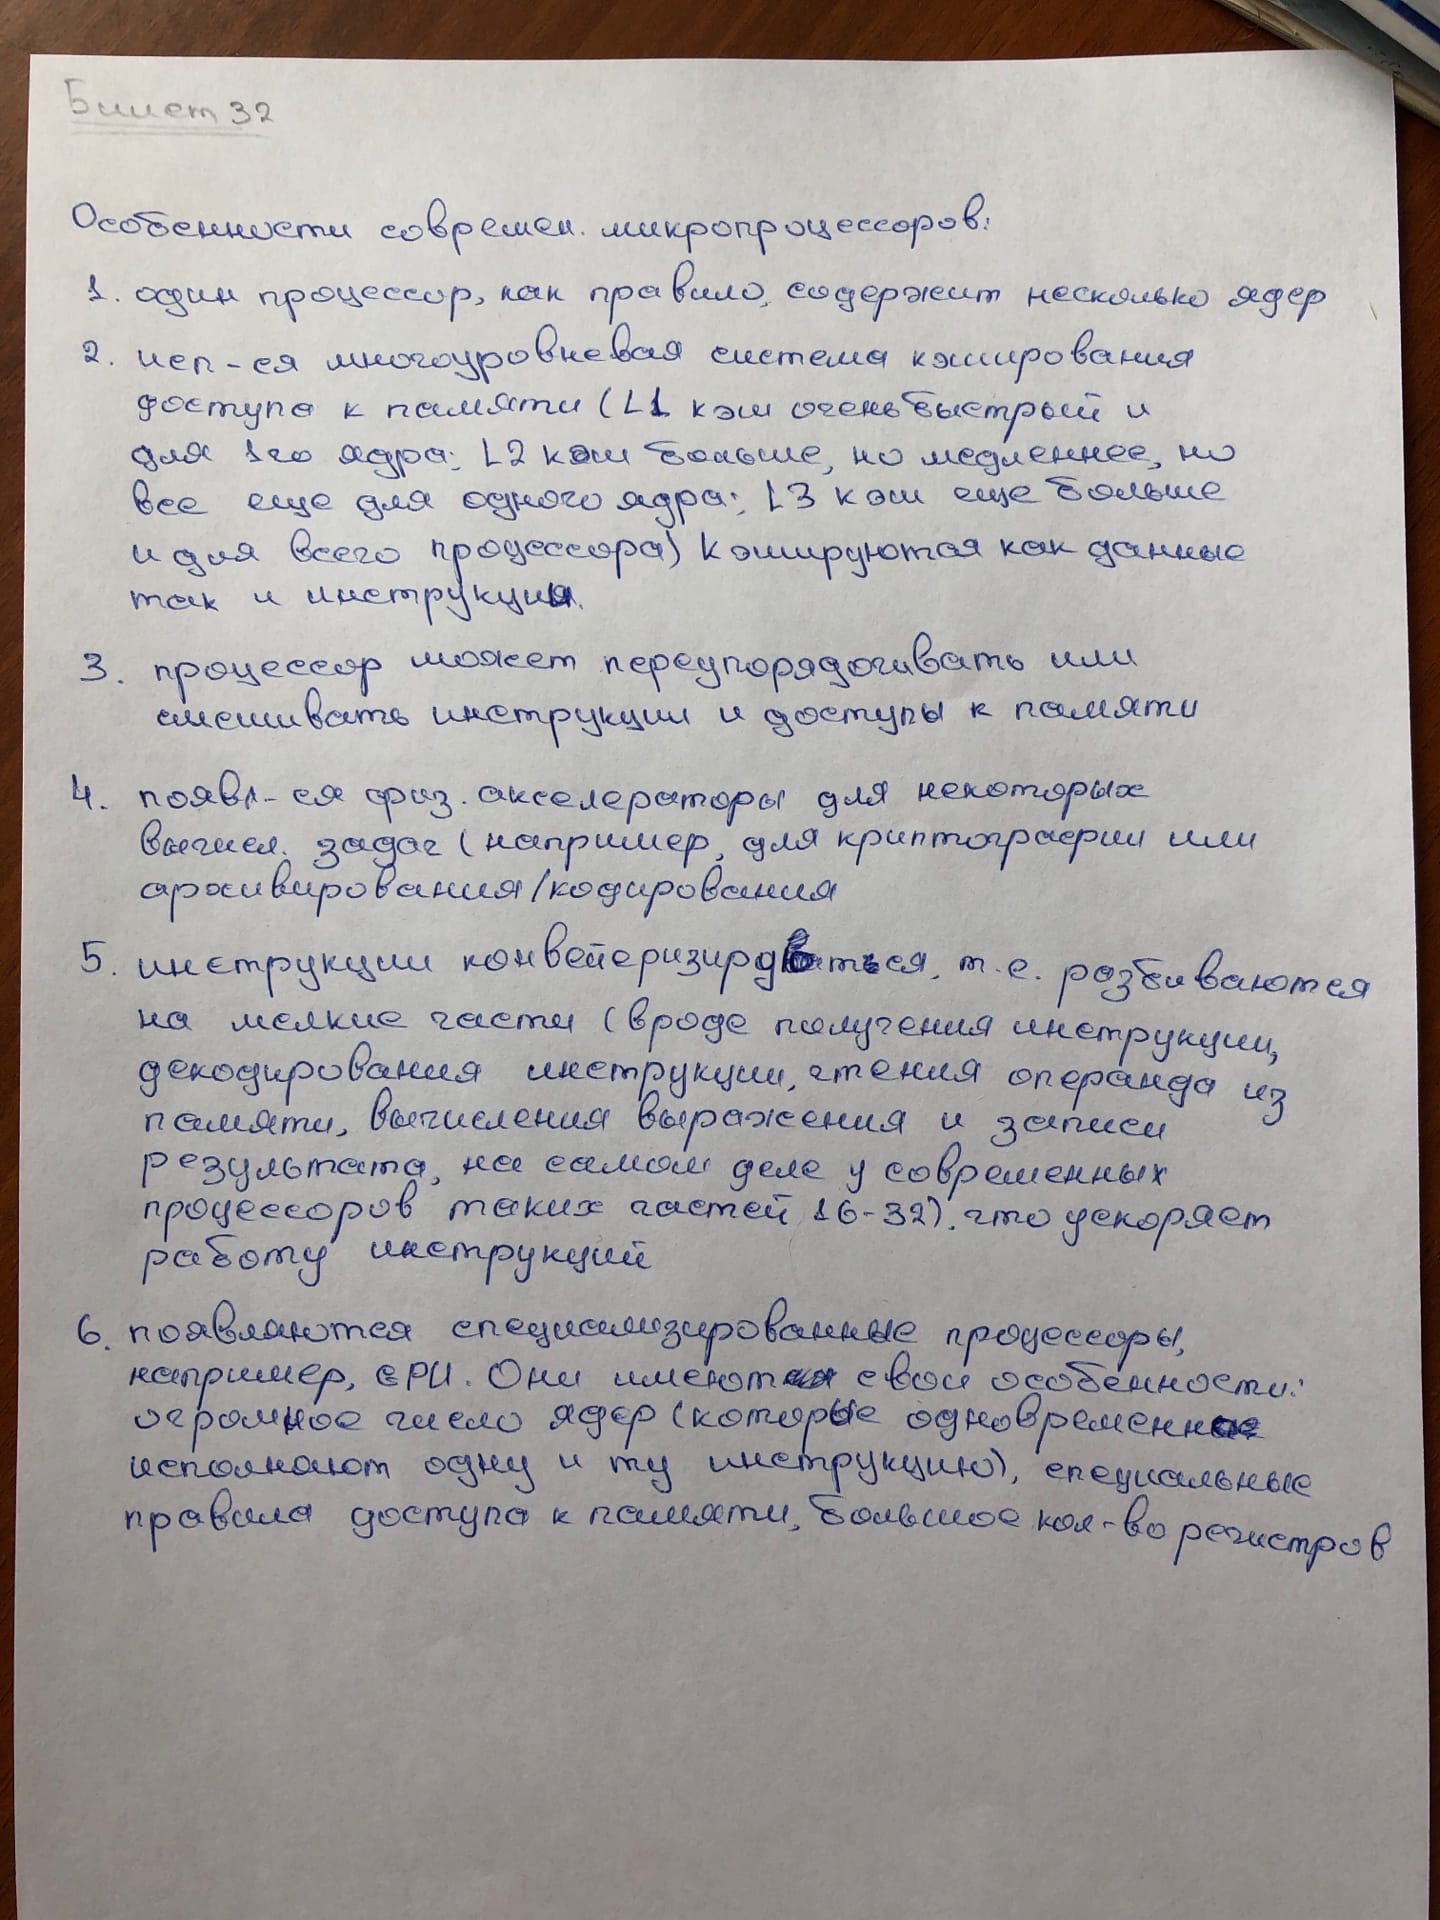 Билет 32
Особенности современ. микропроцессоров:
1. один процессор, как правило, содержит несколько ядер
2. исп-ся многоуровневая система кэширования
доступа к памяти (L1 кэш очень быстрый и
для 1го ядра; L2 кэш больше, но медленнее, но
все еще для одного ядра; L3 кэш еще больше
и для всего процессора) Кэшируются как данные
так и инструкции.
3. процессор может переупорядочивать или
смешивать инструкции и доступы к памяти
4. появл-ся физ. акселераторы для некоторых
вычисл. задач (например, для криптографии или
архивирования/кодирования
5. инструкции конвейеризироваться, т.е. разбиваются
на мелкие части (вроде получения инструкции,
декодирования инструкции, чтения операнда из
памяти, вычисления выражения и записи
результата, на самом деле у современных
процессоров таких частей 16-32), что ускоряет
работу инструкций
6. появляются специализированные процессоры,
например, GPU. Они имеют свои особенности:
огромное число ядер (которые одновременно
исполняют одну и ту инструкцию), специальные
правила доступа к памяти, большое кол-во регистров